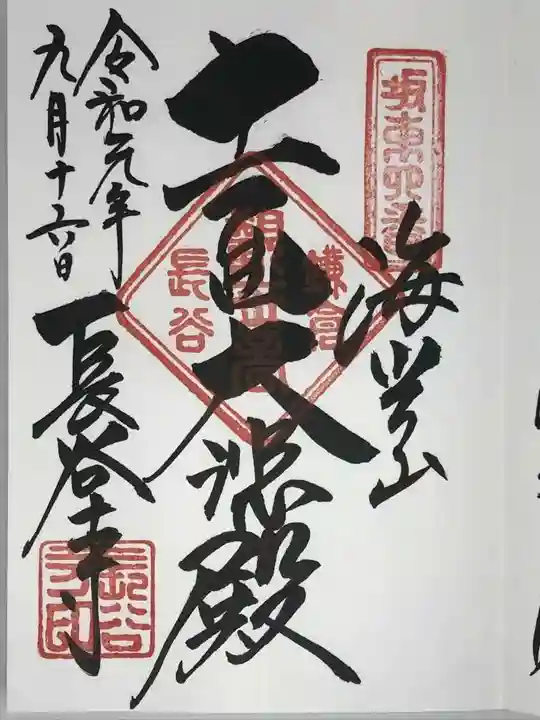 坂東四番
海光山
十一面大悲殿
鎌倉
観世音
長谷
令和元年
九月十六日
長谷寺
長谷
寺印